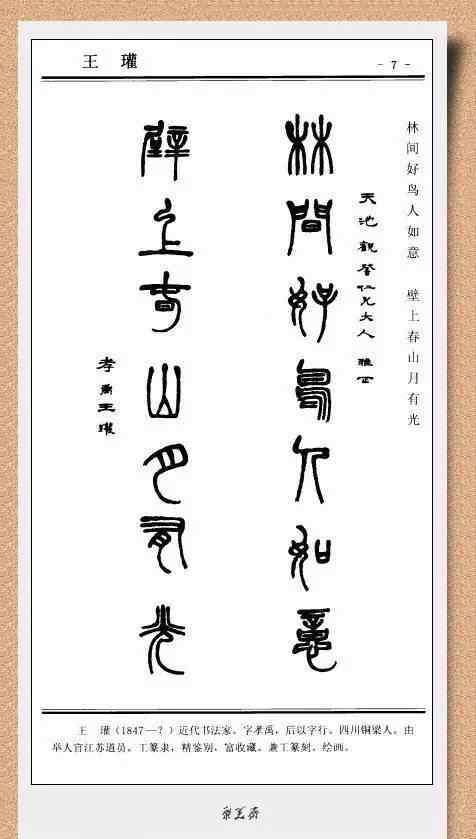 王 瓘
- 7 -
林间好鸟人如意 壁上春山月有光
林間好鳥人如意
天池觀詧仁兄大人 雅正
壁上旾山月有光
孝禹王瓘
王 瓘(1847—?)近代书法家。字孝禹,后以字行。四川铜梁人。由
举人官江苏道员。工篆隶,精鉴别,富收藏。兼工篆刻、绘画。